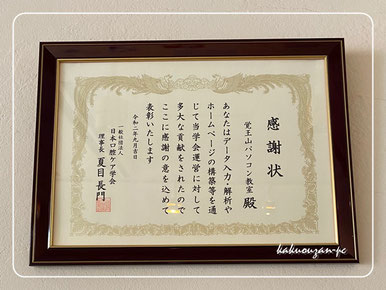 感謝状
覚王山パソコン教室 殿
あなたはデータ入力・解析や
ホームページの構築等を通
じて当学会運営に対して
多大な貢献をされたので
ここに感謝の意を込めて
表彰いたします
令和二年九月吉日
一般社団法人
日本口腔ケア学会
理事長 夏目長門
kakuouzan-pc